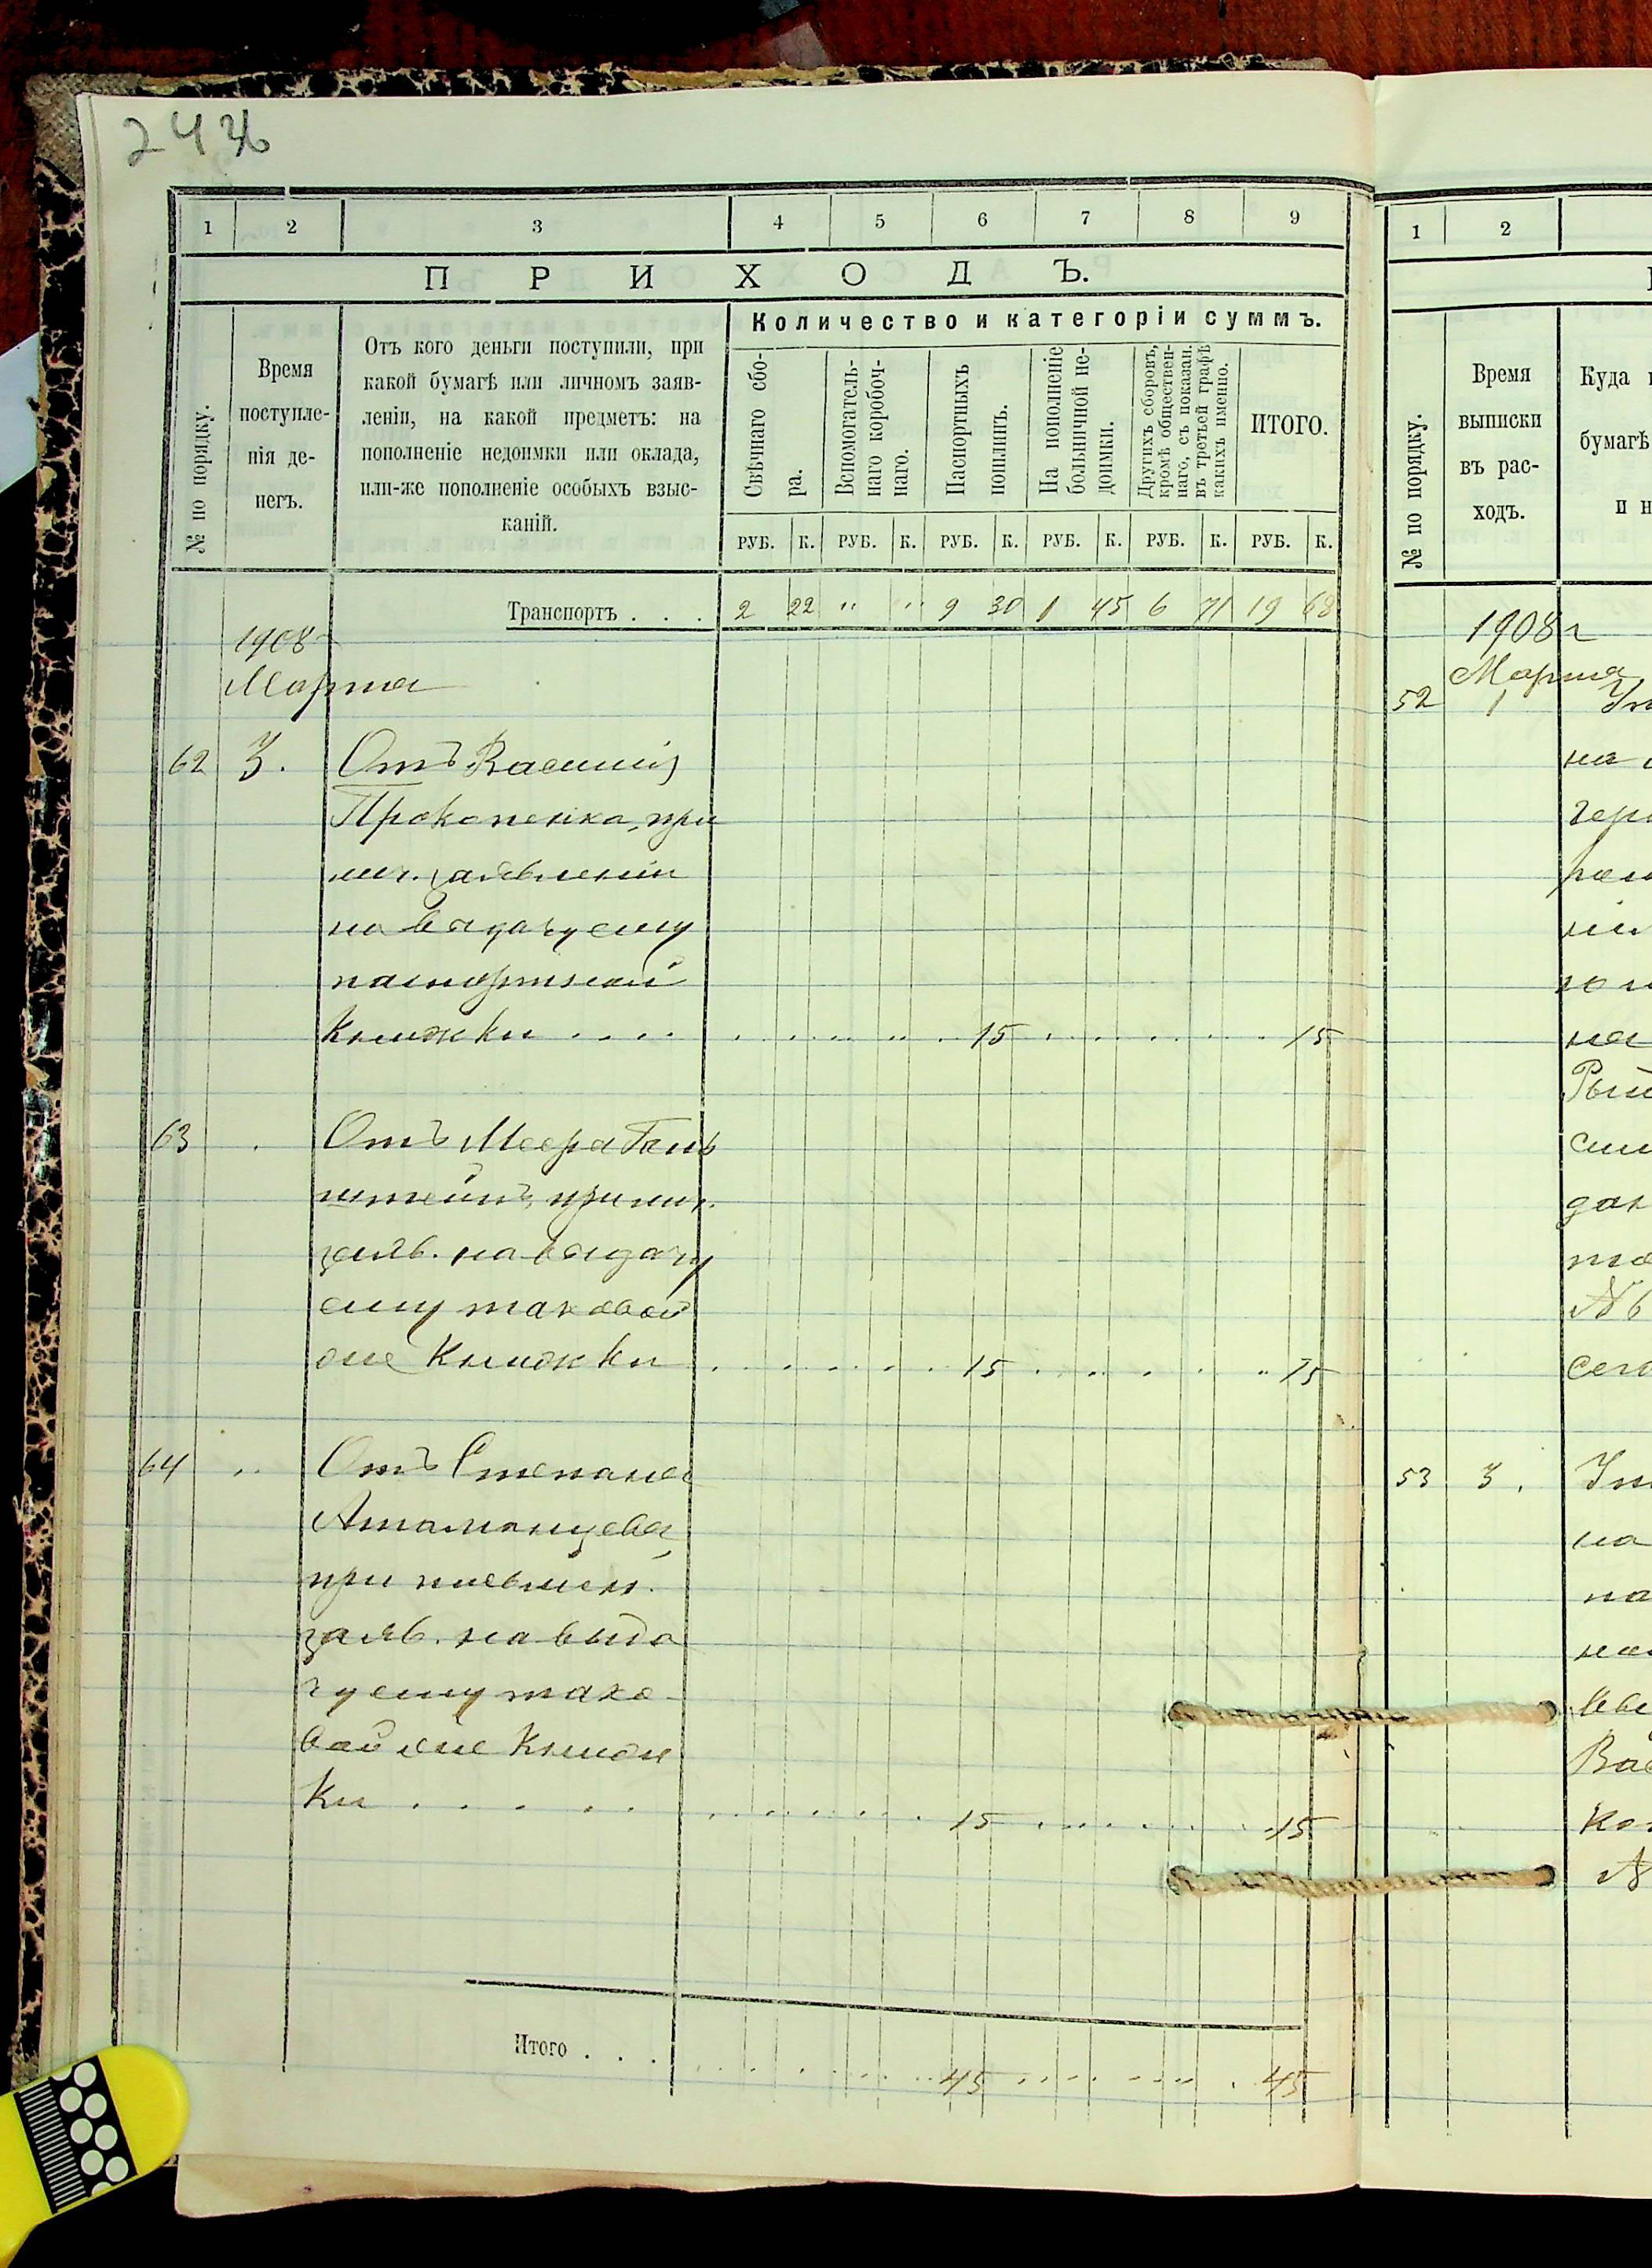 1 2 3 4 5 6 7 8 9
ПРИХОДЪ.
№ по порядку.
Время
поступле-
нія де-
негъ.
Отъ кого деньги поступили, при
какой бумагѣ или личномъ заяв-
леніи, на какой предметъ: на
пополненіе недоимки или оклада,
или-же пополненіе особыхъ взыс-
каній.
Количество и категоріи суммъ.
Свѣчнаго сбо-
ра.
Вспомогатель-
наго коробоч-
наго.
Паспортныхъ
пошлинъ.
На пополненіе
больничной не-
доимки.
Другихъ сборовъ,
кромѣ обществен-
наго, съ показан.
въ третьей графѣ
какихъ именно.
ИТОГО.
РУБ. К. РУБ. К. РУБ. К. РУБ. К. РУБ. К. РУБ. К.
Транспортъ . . . 2 22 " " 9 30 1 45 6 71 19 68
1908
Марта
62 3. Отъ Василія
Прокопенка, при
лич. заявленіи
на выдачу ему
паспортной
книжки .... 15 15
63 Отъ Меера
штейнъ, при лич.
заяв. на выдачу
ему таковой
же книжки 15 15
64 " Отъ Степана
Атаманцева
при письмен.
заяв. на выда
чу ему тако-
вой же книж
ки . . . . . 15 15
Итого . . . 45 45
1 2
№ по порядку.
Время
выписки
въ рас-
ходъ.
Куда
бумагѣ
и н
1908 г
Марта
52 1
на
53 3.
на